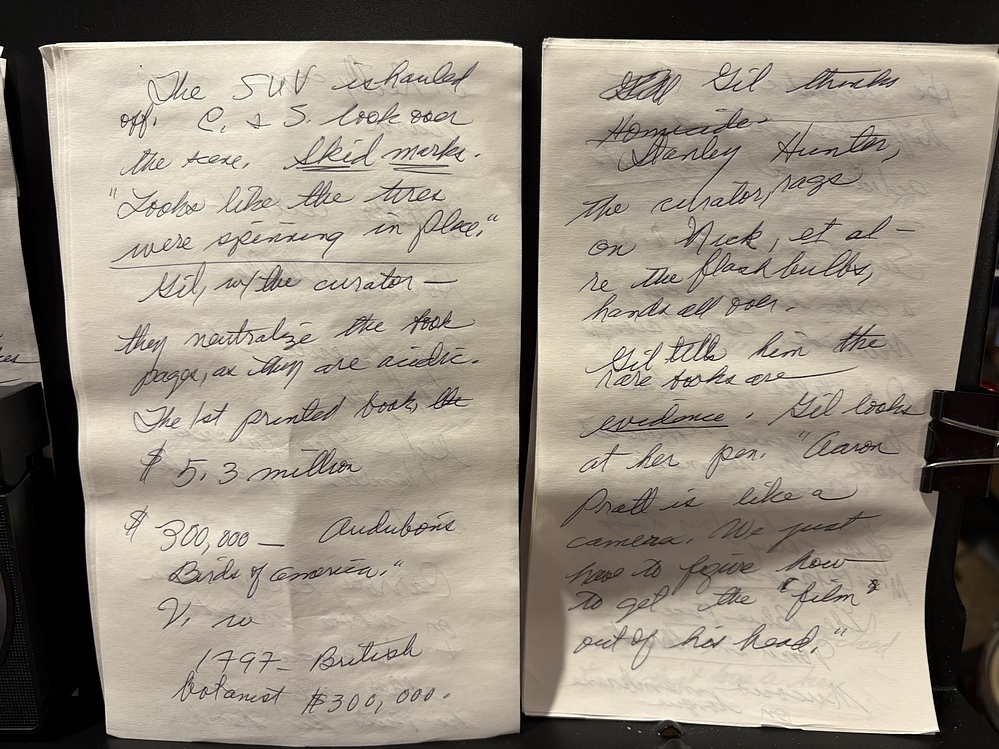 The SUV is hauled
off. C. & S. look over
the scene. Skid marks.
"Looks like the tires
were spinning in place."
Gil, w/the curator —
they neutralize the book
pages, as they are acidic.
The 1st printed book,
$ 5.3 million
$ 300,000 — Audubon's
Birds of America."
V. w
1797 - British
botanist $300,000.
Gil thinks
Homicide.
Stanley Hunter,
the curator, rags
on Nick, et al -
re the flash bulbs,
hands all over.
Gil tells him the
rare books are
evidence. Gil looks
at her pen. "Aaron
Pratt is like a
camera. We just
have to figure how
to get the "film"
out of his head."